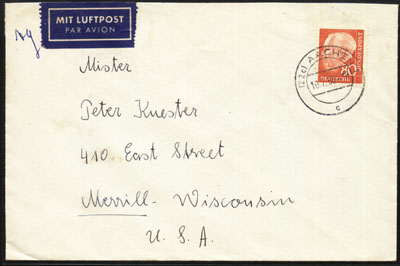 MIT LUFTPOST
PAR AVION
(22c) AACHEN
c
80
DEUTSCHE BUNDESPOST
Mister
Peter Kuester
410 East Street
Merrill - Wisconsin
U. S. A.